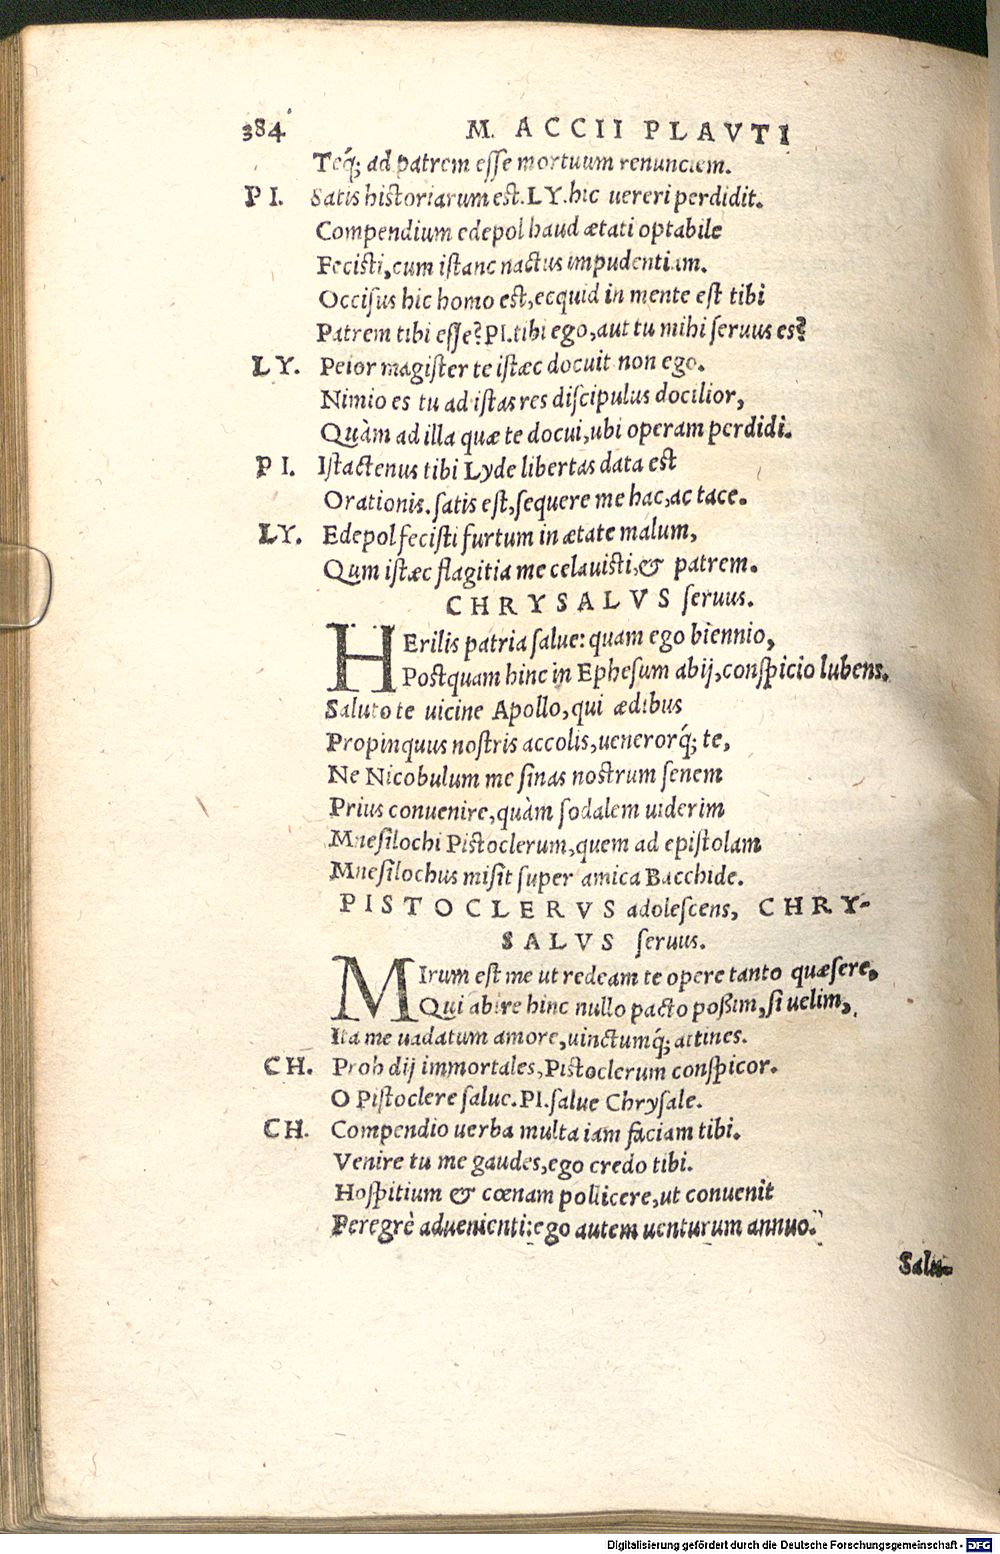 384 M. ACCII PLAVTI
Teq́; ad patrem esse mortuum renunciem.
PI. Satis historiarum est. LY. hic uereri perdidit.
Compendium edepol haud ætati optabile
Fecisti, cum istanc nactus impudentiam.
Occisus hic homo est, ecquid in mente est tibi
Patrem tibi esse? PI. tibi ego, aut tu mihi seruus es?
LY. Peior magister te istæc docuit non ego.
Nimio es tu ad istas res discipulus docilior,
Quàm ad illa quæ te docui, ubi operam perdidi.
PI. Istactenus tibi Lyde libertas data est
Orationis. satis est, sequere me hac, ac tace.
LY. Edepol fecisti furtum in ætate malum,
Qum istæc flagitia me celauisti, & patrem.
CHRYSALVS seruus.
HErilis patria salue: quam ego biennio,
Postquam hinc in Ephesum abij, conspicio lubens.
Saluto te uicine Apollo, qui ædibus
Propinquus nostris accolis, uenerorq́; te,
Ne Nicobulum me sinas nostrum senem
Prius conuenire, quàm sodalem uiderim
Mnesilochi Pistoclerum, quem ad epistolam
Mnesilochus misit super amica Bacchide.
PISTOCLERVS adolescens, CHRY-
SALVS seruus.
MIrum est me ut redeam te opere tanto quæsere,
Qui abire hinc nullo pacto poßim, si uelim,
Ita me uadatum amore, uinctumq́; attines.
CH. Proh dij immortales, Pistoclerum conspicor.
O Pistoclere salue. PI. salue Chrysale.
CH. Compendio uerba multa iam faciam tibi.
Venire tu me gaudes, ego credo tibi.
Hospitium & cœnam pollicere, ut conuenit
Peregrè aduenienti: ego autem uenturum annuo.
Salu-
Digitalisierung gefördert durch die Deutsche Forschungsgemeinschaft - DFG